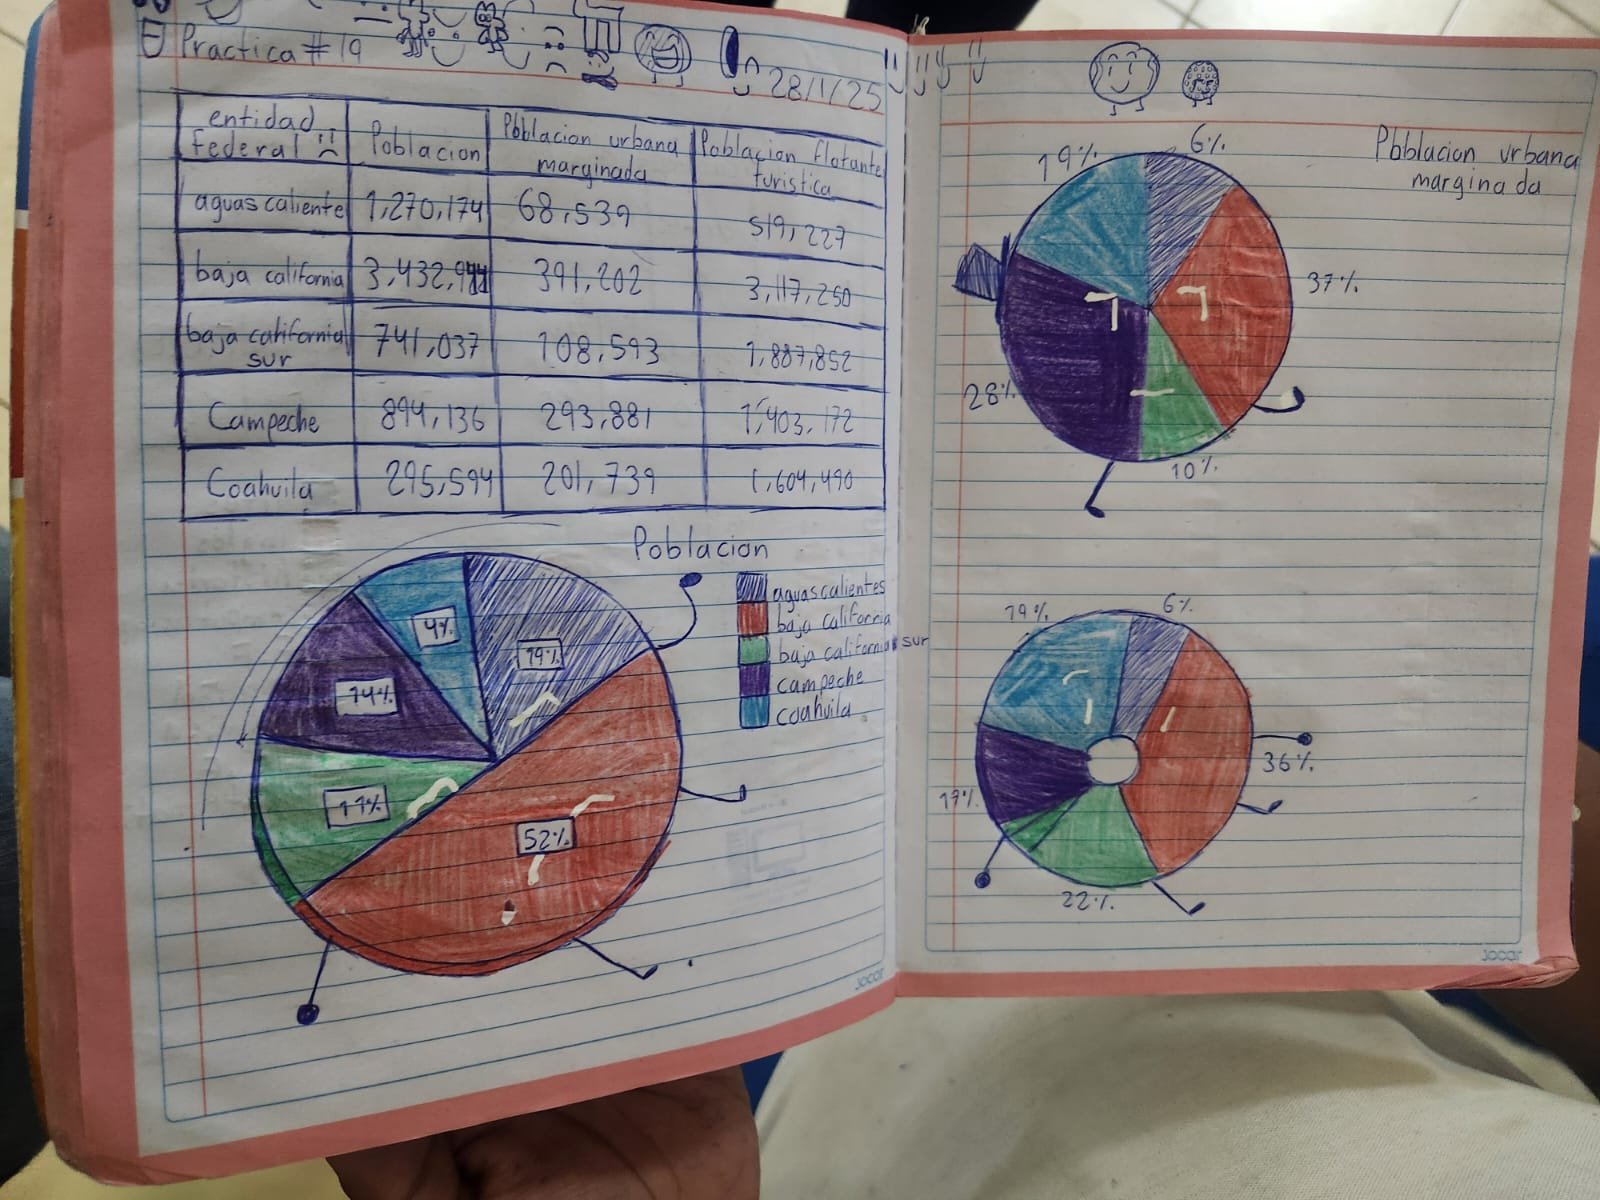 Practica #19
28/1/25
entidad federal
Poblacion
Poblacion urbana marginada
Poblacion flotante turistica
aguas caliente 1,270,174 68,539 519,227
baja california 3,432,944 391,202 3,117,250
baja california sur 741,037 108,593 1,887,852
Campeche 894,136 293,881 1,403,172
Coahuila 295,594 201,739 1,604,490
Poblacion
aguascalientes
baja california
baja california sur
campeche
coahuila
4%
19%
14%
11%
52%
jocar
Poblacion urbana
marginada
6%
19%
37%
28%
10%
19%
6%
36%
17%
22%
jocar